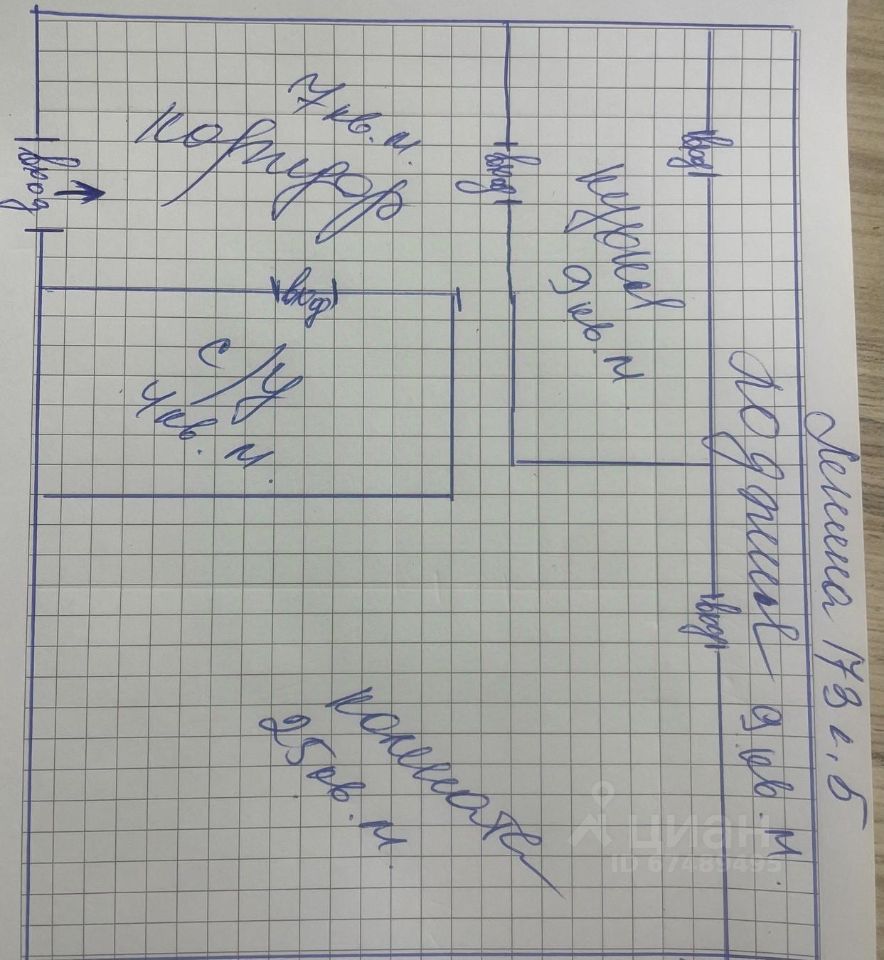 Ленина 173 г. 5
7 кв. м.
коридор
вход
вход
вход
кухня
9 кв. м
вход
с/у
4 кв. м.
лоджия 9 кв. м.
вход
комната
25 кв. м.
циан
ID 67489495